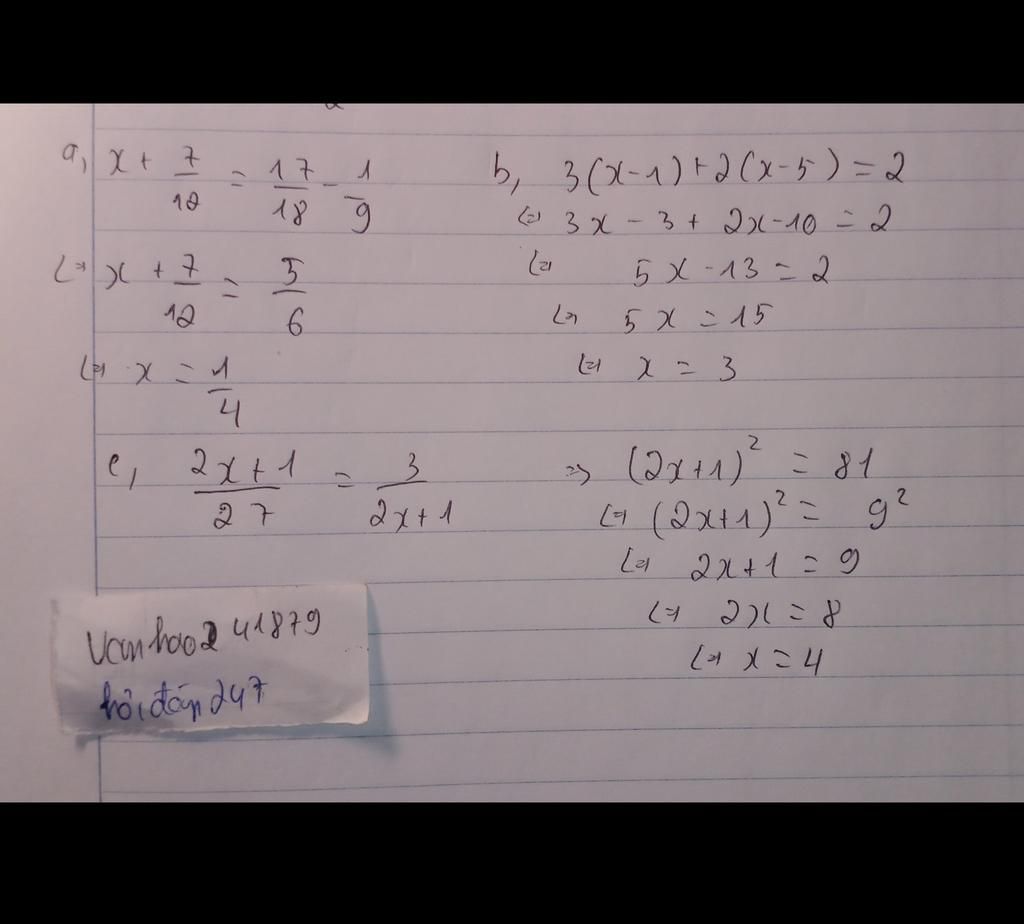 a, x + 7/12 = 17/18 - 1/9
<=> x + 7/12 = 5/6
<=> x = 1/4
b, 3(x-1)+2(x-5) = 2
<=> 3x - 3 + 2x - 10 = 2
<=> 5x - 13 = 2
<=> 5x = 15
<=> x = 3
c, (2x+1)/27 = 3/(2x+1)
=> (2x+1)² = 81
<=> (2x+1)² = 9²
<=> 2x+1 = 9
<=> 2x = 8
<=> x = 4
vanhao241879
hỏi đáp 247